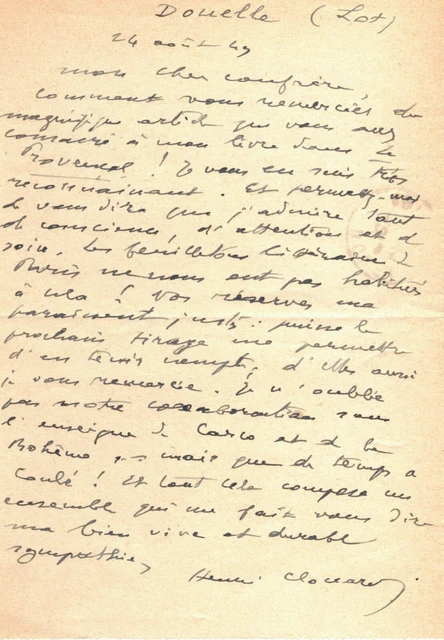 Douelle (Lot)
24 août 49
mon cher confrère,
comment vous remercier du
magnifique article que vous avez
consacré à mon livre dans le
Provençal ! Je vous en suis très
reconnaissant. Et permettez-moi
de vous dire que j'admire tant
de conscience, d'attention et de
soin. Les feuilletons littéraires de
Paris ne nous ont pas habitués
à cela ! Vos réserves me
paraissent justes : puisse le
prochain tirage me permettre
d'en tenir compte, d'elles aussi
je vous remercie. Je n'oublie
pas notre collaboration sous
l'enseigne de Carco et de la
Bohème, mais que de temps a
coulé ! Et tout cela compose un
ensemble qui me fait vous dire
ma bien vive et durable
sympathie,
Henri Clouard